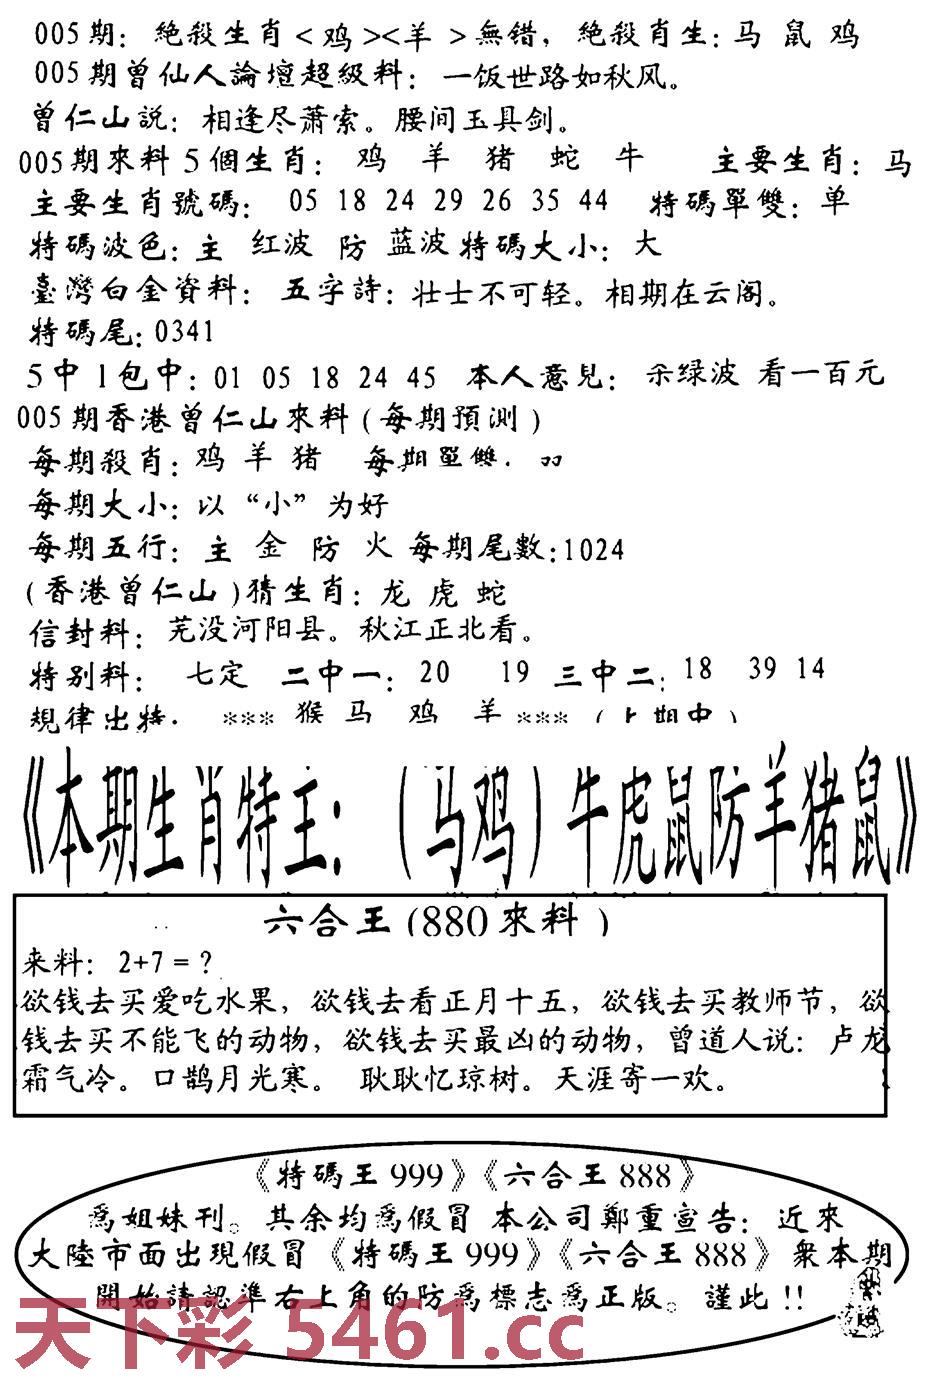 005期：絶殺生肖<鸡><羊>無错，絶殺肖生：马 鼠 鸡
005期曾仙人論壇超級料：一饭世路如秋风。
曾仁山説：相逢尽萧索。腰间玉具剑。
005期來料5個生肖：鸡 羊 猪 蛇 牛 主要生肖：马
主要生肖號碼：05 18 24 29 26 35 44 特碼單雙：单
特碼波色：主 红波 防 蓝波 特碼大小：大
臺灣白金資料：五字詩：壮士不可轻。相期在云阁。
特碼尾：0341
5中1包中：01 05 18 24 45 本人意見：买绿波 看一百元
005期香港曾仁山來料(每期預測)
每期殺肖：鸡 羊 猪 每期單雙：
每期大小：以“小”为好
每期五行：主 金 防 火 每期尾數：1024
(香港曾仁山)猜生肖：龙 虎 蛇
信封料：芜没河阳县。秋江正北看。
特别料：七定 二中一：20 19 三中二：18 39 14
規律出特：***猴 马 鸡 羊***（上期中）
《本期生肖特主：（马鸡）牛虎鼠防羊猪鼠》
六合王(880來料)
来料：2+7=？
欲钱去买爱吃水果，欲钱去看正月十五，欲钱去买教师节，欲
钱去买不能飞的动物，欲钱去买最凶的动物，曾道人说：卢龙
霜气冷。口鹊月光寒。 耿耿忆琼树。天涯寄一欢。
《特碼王999》《六合王888》
爲姐妹刊。其余均爲假冒 本公司鄭重宣告：近來
大陸市面出現假冒《特碼王999》《六合王888》衆本期
開始請認準右上角的防爲標志爲正版。謹此!!
天下彩 5461.cc